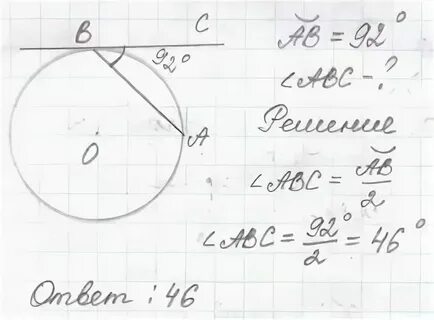 B C
92°
A
O
◡AB = 92°
∠ABC - ?
Решение
∠ABC = ◡AB/2
∠ABC = 92°/2 = 46°
Ответ: 46